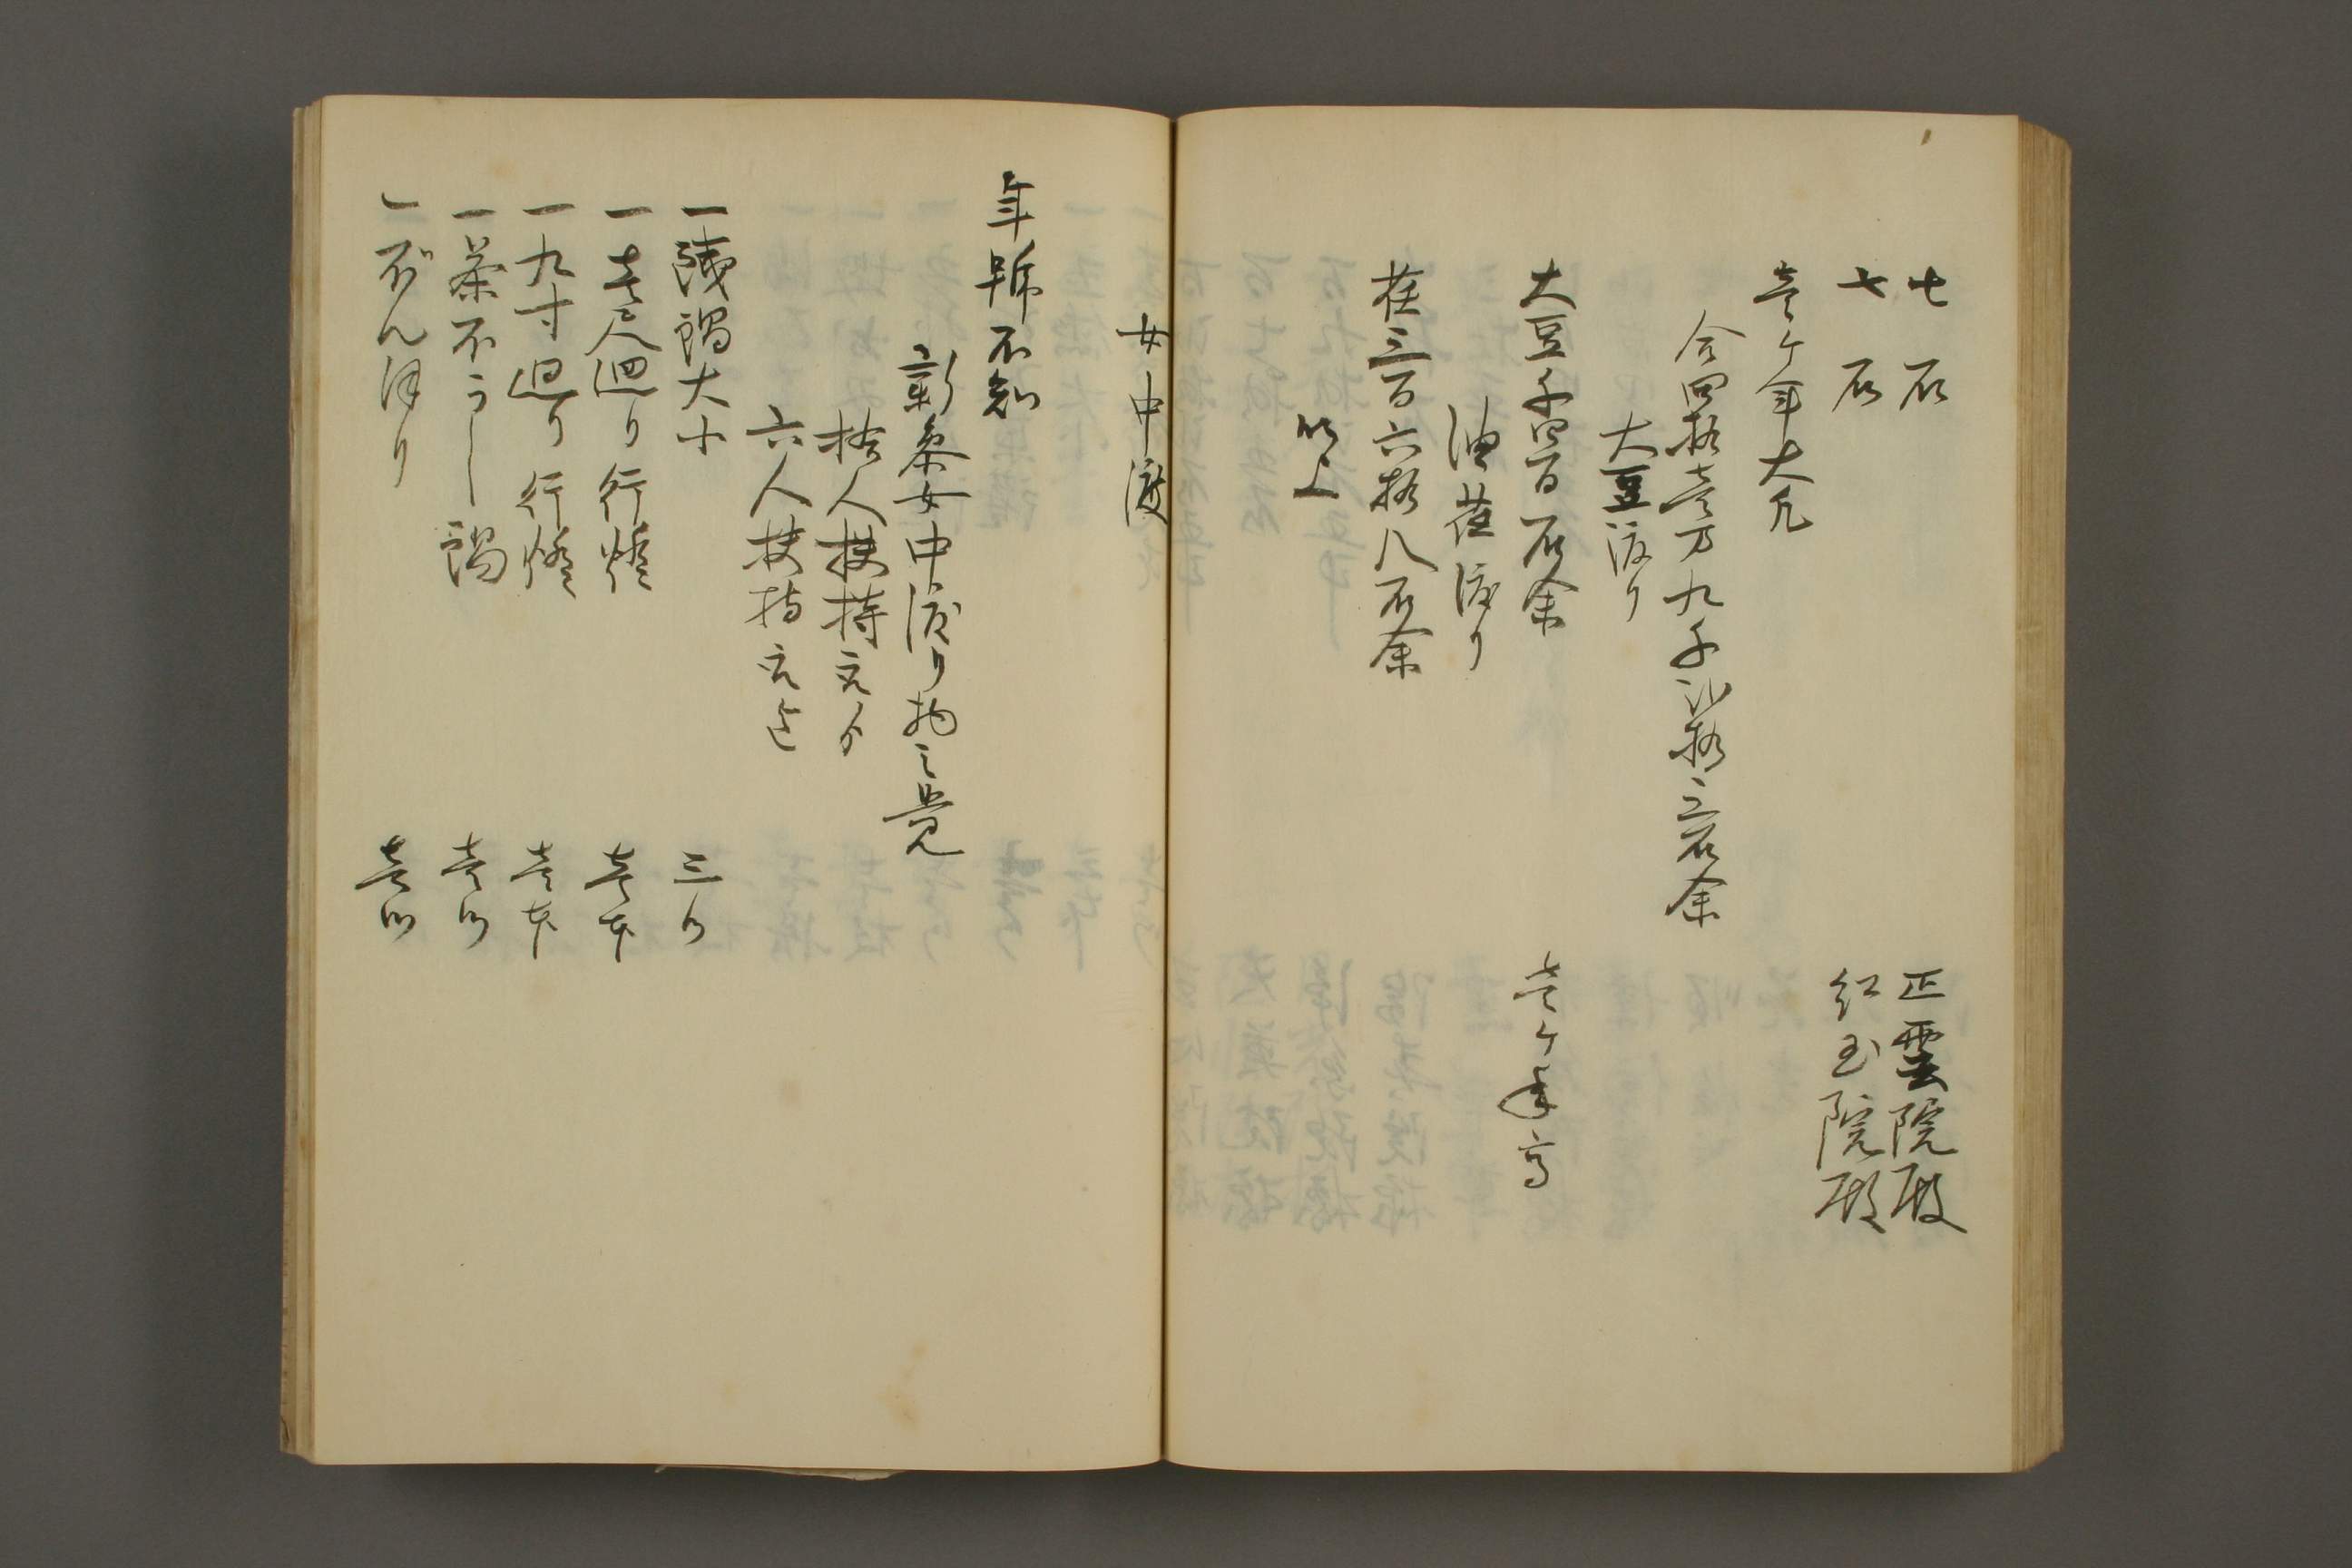 七石 正雲院殿
七石 紅玉院殿
壱ケ年大凡
合四拾壱万九千弐拾三石余
大豆渡り
大豆千四百石余 壱ケ年高
油荏渡り
荏三百六拾八石余
以上
女中渡
年号不知
新参女中渡り物之覚
拾人扶持究ゟ
六人扶持究迄
一銭鍋大小 三ツ
一壱尺廻り行燈 壱本
一九寸廻り行燈 壱本
一茶不うし鍋 壱ツ
一ぼんほり 壱ツ